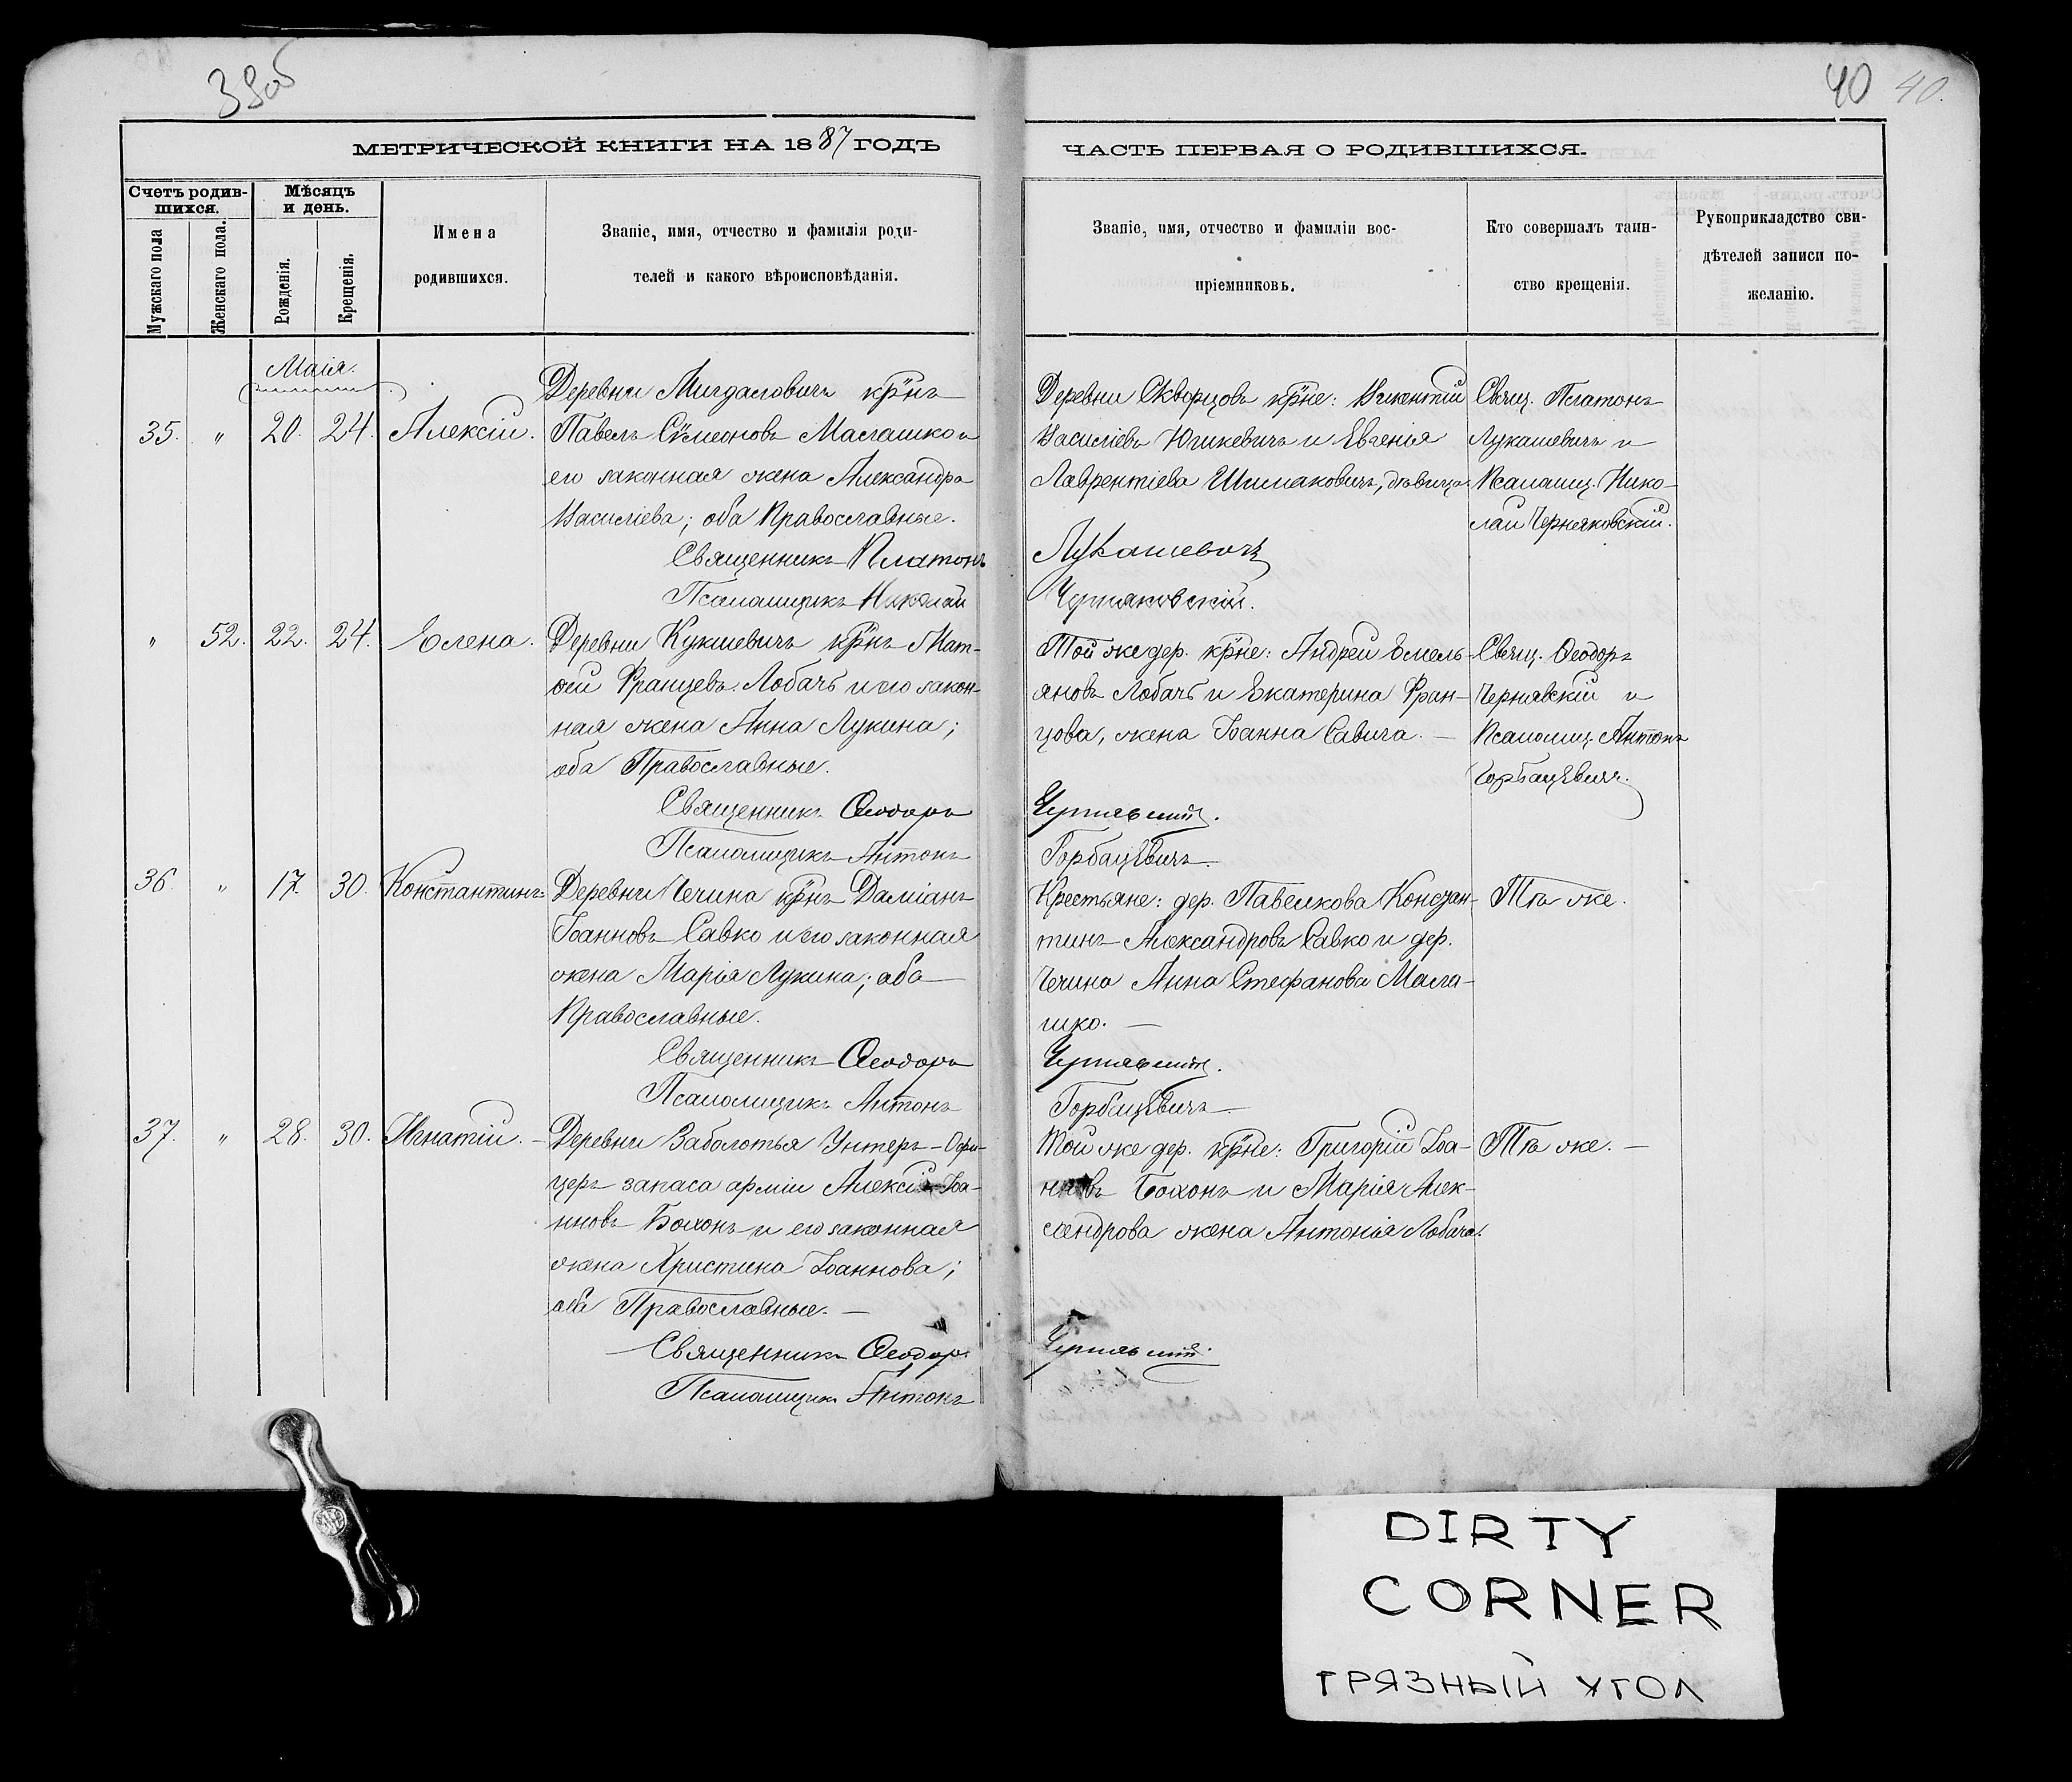 39об
40 40.
МЕТРИЧЕСКОЙ КНИГИ НА 1887 ГОДЪ
ЧАСТЬ ПЕРВАЯ О РОДИВШИХСЯ.
Счетъ родив-
шихся.
Мужскаго пола
Женскаго пола.
Мѣсяцъ
и день.
Рожденія.
Крещенія.
Имена
родившихся.
Званіе, имя, отчество и фамилія роди-
телей и какого вѣроисповѣданія.
Званіе, имя, отчество и фамиліи вос-
пріемниковъ.
Кто совершалъ таин-
ство крещенія.
Рукоприкладство сви-
дѣтелей записи по-
желанію.
Маія.
35. " 20. 24. Алексій.
Деревни Мигдаловичъ кр̃нъ
Павелъ Сѵмеоновъ Маглашко и
его законная жена Александра
Василіева; оба Православные.
Священникъ Платонъ
Псаломщикъ Николай
Деревни Скворцовъ кр̃не: Викентій
Василіевъ Юшкевичъ и Евгенія
Лаврентіева Шимаковичъ, дѣвица.
Лукашевичъ
Черняковскій.
Свящ. Платонъ
Лукашевичъ и
Псаломщ. Нико-
лай Черняковскій.
" 52. 22. 24. Елена.
Деревни Кукшевичъ кр̃нъ Мат-
ѳей Францевъ Лобачъ и его закон-
ная жена Анна Лукина;
оба Православные.
Священникъ Ѳеодоръ
Псаломщикъ Антонъ
Той же дер. кр̃не: Андрей Емель-
яновъ Лобачъ и Екатерина Фран-
цова, жена Іоанна Савича. —
Чернявскій.
Горбацевичъ
Свящ. Ѳеодоръ
Чернявскій и
Псаломщ. Антонъ
Горбацевичъ.
36. " 17. 30. Константинъ.
Деревни Чечина кр̃нъ Даміанъ
Іоанновъ Савко и его законная
жена Марія Лукина; оба
Православные.
Священникъ Ѳеодоръ
Псаломщикъ Антонъ
Крестьяне: дер. Павелкова Констан-
тинъ Александровъ Савко и дер.
Чечина Анна Стефанова Магла-
шко. —
Чернявскій.
Горбацевичъ
Тѣ же.
37. " 28. 30. Игнатій. —
Деревни Заболотья Унтеръ-Офи-
церъ запаса арміи Алексій Іоа-
нновъ Бохонъ и его законная
жена Христина Іоаннова;
оба Православные. —
Священникъ Ѳеодоръ
Псаломщикъ Антонъ
Той же дер. кр̃не: Григорій Іоа-
нновъ Бохонъ и Марія Алек-
сандрова жена Антонія Лобача.
Чернявскій.
Тѣ же. —
DIRTY
CORNER
ГРЯЗНЫЙ УГОЛ